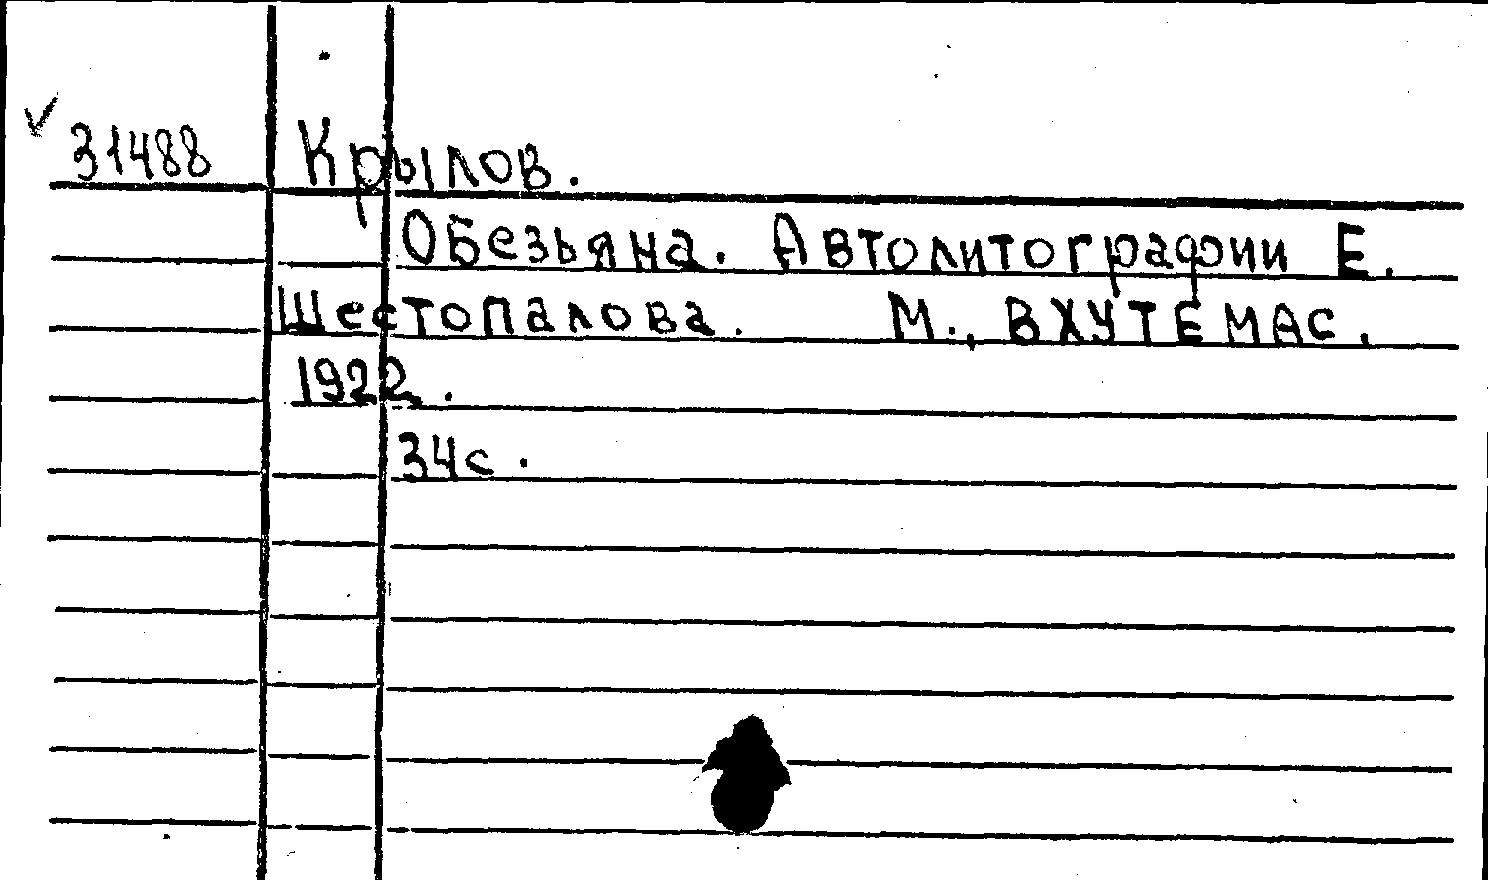 31488 Крылов.
Обезьяна. Автолитографии Е.
Шестопалова. М., ВХУТЕМАС.
1922.
34с.